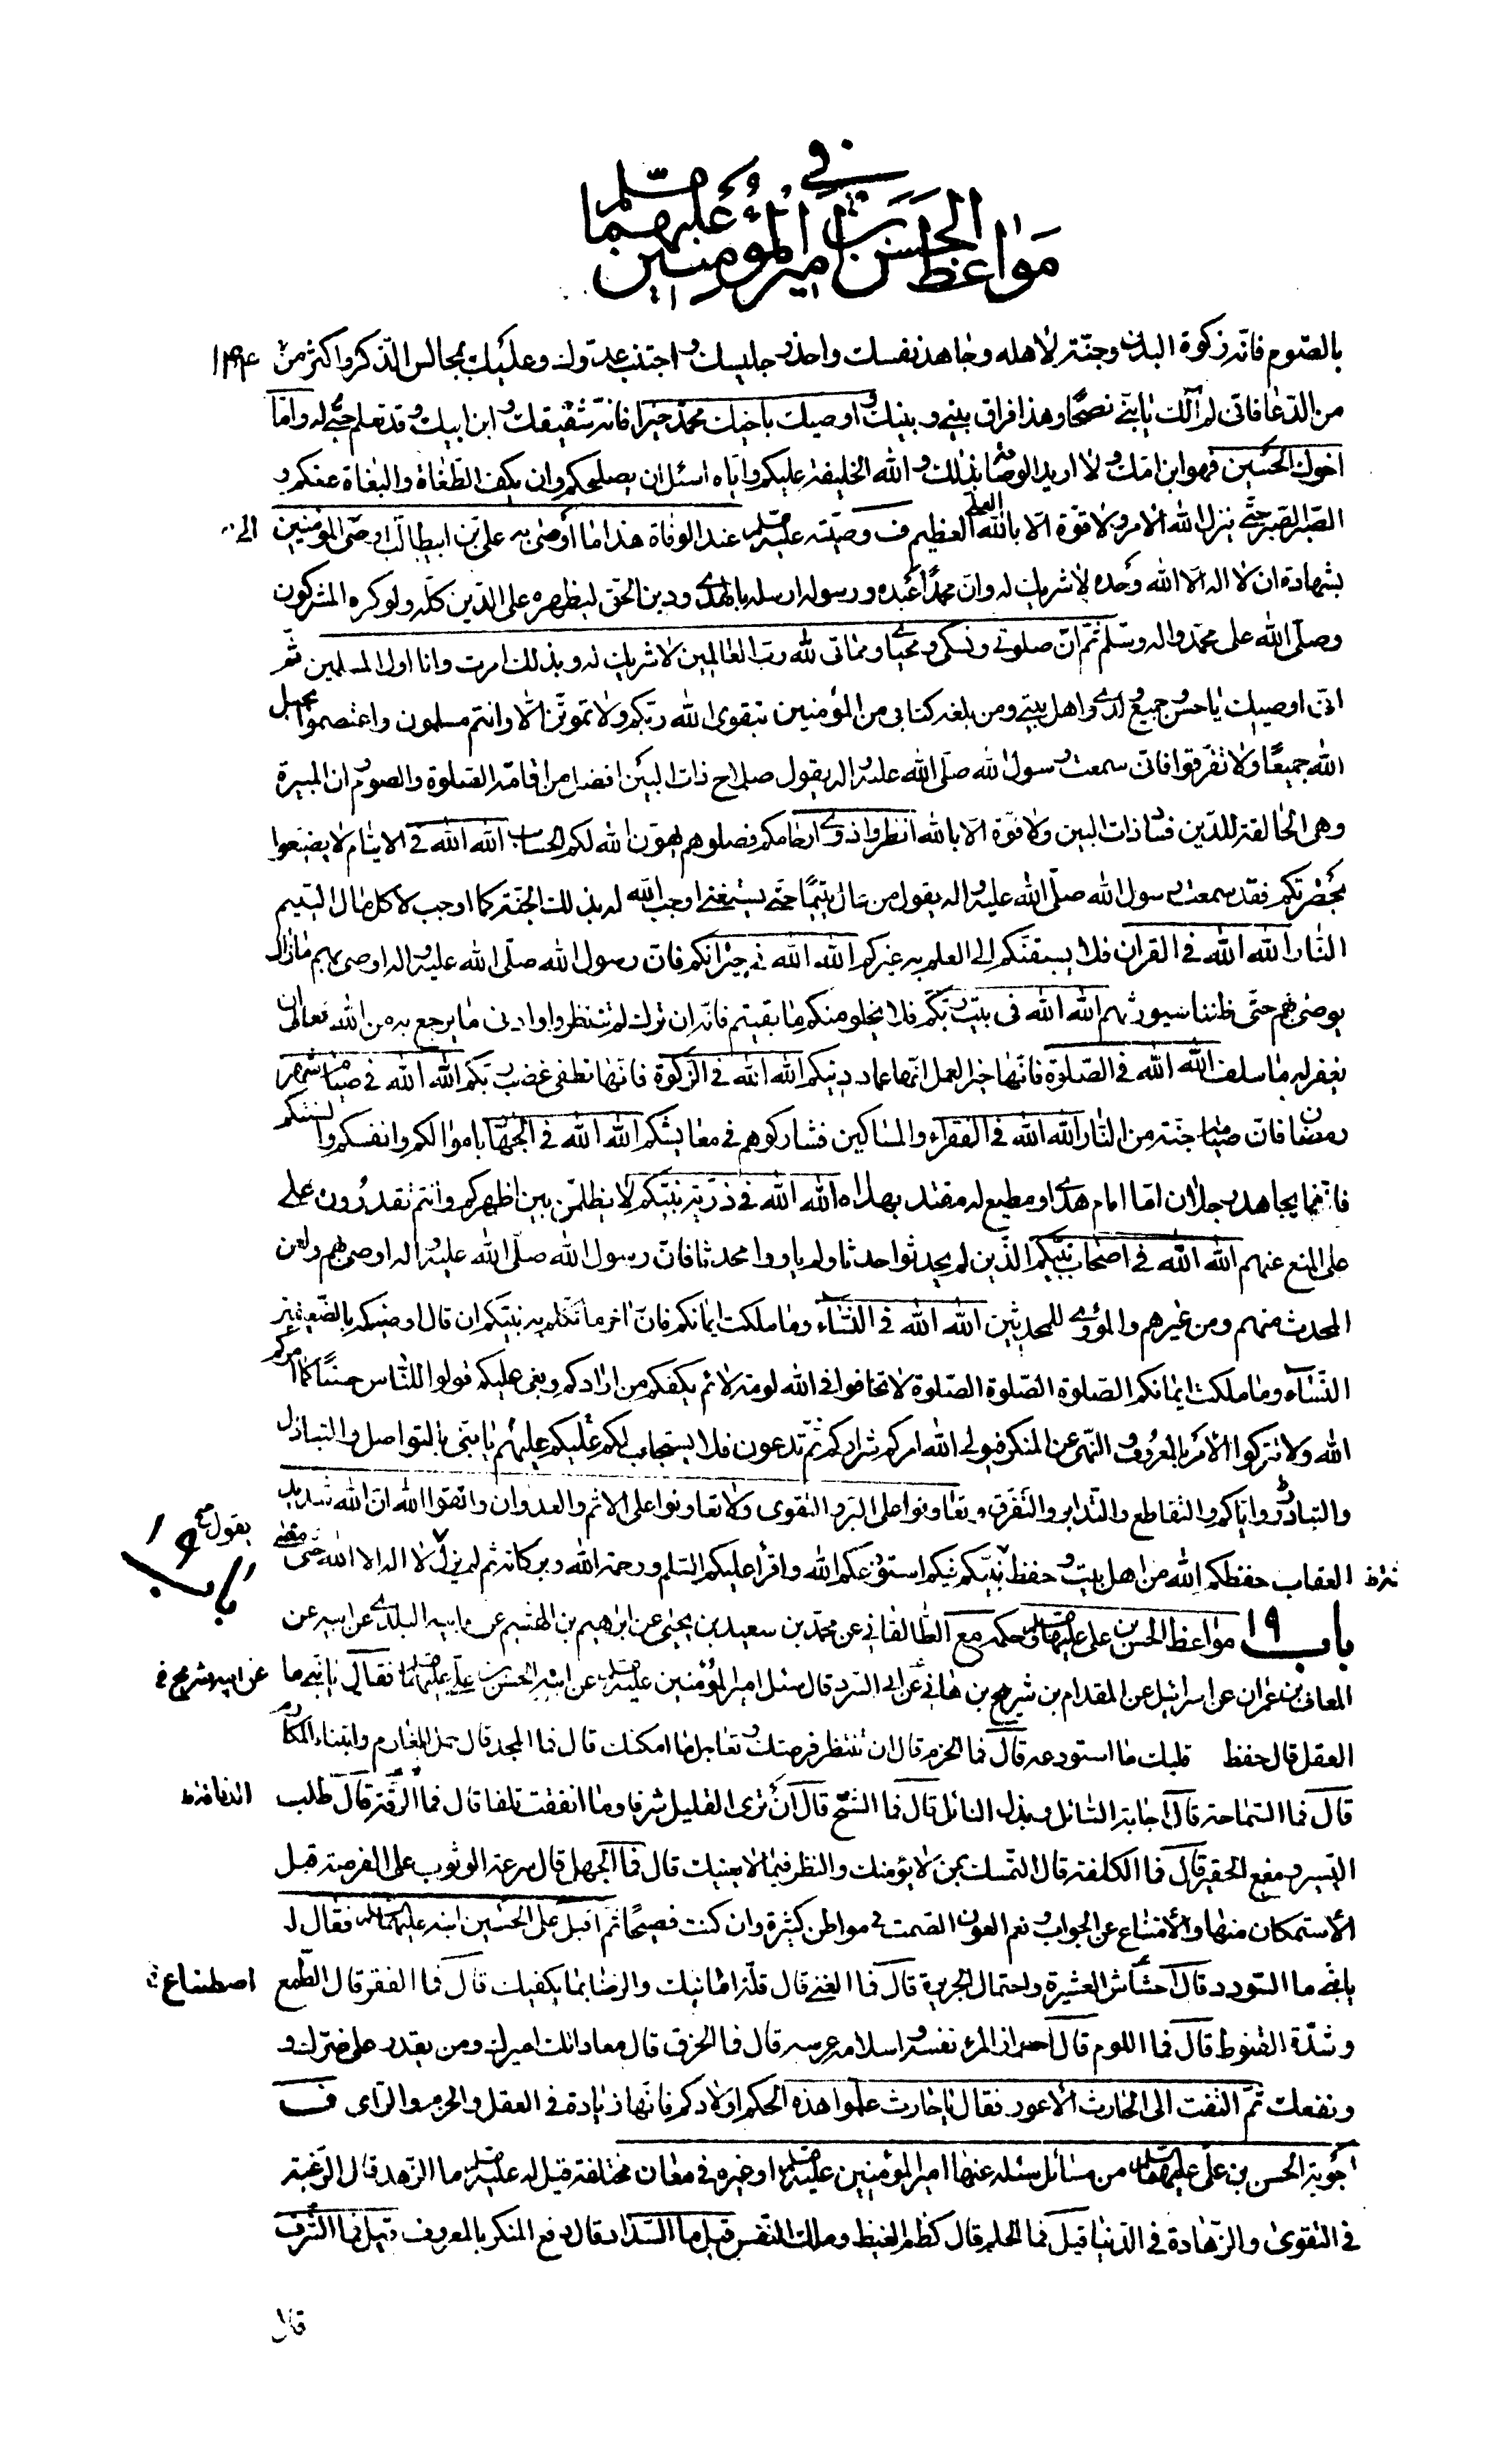 في
مواعظ الحسن بن امير المؤمنين صلم عليهما
بالصّوم فانّه زكوة البدن وجنّة لاهله وجاهد نفسك واحذر جليسك واجتنب عدوّك وعليك بمجالس الذّكر واكثر من
من الدّعا فانّى لم آلك يا بنىّ نصحًا وهذا فراق بينى وبينك واوصيك باخيك محمّد خيرا فانّه شقيقك وابن ابيك وقد تعلم حبّى له وامّا
اخوك الحسين فهو ابن امّك ولا اريد الوصاة بذلك والله الخليفة عليكم وايّاه اسئل ان يصلحكم وان يكفّ الطّغاة والبغاة عنكم و
الصّبر الصّبر حتّى ينزل الله الامر ولا قوّة الّا بالله العلى العظيم ف وصيّته عليه صلم عند الوفاة هذا ما اوصى به على بن ابيطالب اوصى المؤمنين الى
بشهادة ان لا اله الّا الله وحده لا شريك له وانّ محمّدًا عبده ورسوله ارسله بالهدى ودين الحق ليظهره على الدّين كلّه ولو كره المشركون
وصلّى الله على محمّد واله وسلّم ثمّ انّ صلوتى ونسكى ومحياى ومماتى لله ربّ العالمين لا شريك له وبذلك امرت وانا اول المسلمين ثمّ
انّى اوصيك يا حسن وجميع ولدى واهل بيتى ومن بلغه كتابى من المؤمنين بتقوى الله ربّكم ولا تموتنّ الّا وانتم مسلمون واعتصموا بحبل
الله جميعًا ولا تفرّقوا فانّى سمعت رسول الله صلّى الله عليه واله يقول صلاح ذات البين افضل من اقامة الصّلوة والصوم وان المبيرة
وهى الحالقة للدّين فساد ذات البين ولا قوّة الّا بالله انظروا ذوى ارحامكم فصلوهم يهوّن الله لكم الحساب الله الله فى الايتام لا يضيّعوا
بحضرتكم فقد سمعت رسول الله صلّى الله عليه واله يقول من عال يتيمًا حتّى يستغنى اوجب الله له بذلك الجنّة كما اوجب لاكل مال اليتيم
النّار الله الله فى القران فلا يسبقنّكم الى العلم به غيركم الله الله فى جيرانكم فانّ رسول الله صلّى الله عليه واله اوصى بهم ما زال
يوصى بهم حتّى ظننا سيورثهم الله الله فى بيت ربّكم فلا يخلو منكم ما بقيتم فانّه ان ترك لم تنتظروا وادنى ما يرجع به من الله تعالى ان
يغفر له ما سلف الله الله فى الصّلوة فانّها خير العمل انّها عماد دينكم الله الله فى الزّكوة فانّها تطفى غضب ربّكم الله الله فى صيام شهر
رمضان فانّ صيامه جنّة من النّار الله الله فى الفقراء والمساكين فشاركوهم فى معايشكم الله الله فى الجهاد باموالكم وانفسكم والسنتكم
فانّما يجاهد رجلان امّا امام هدى او مطيع له مقتد بهداه الله الله فى ذرّيّة نبيّكم لا يظلمنّ بين اظهركم وانتم تقدرون على
على المنع عنهم الله الله فى اصحاب نبيّكم الّذين لم يحدثوا حدثا ولم ياووا محدثا فانّ رسول الله صلّى الله عليه واله اوصى بهم ولعن
المحدث منهم ومن غيرهم والمؤوى للمحدثين الله الله فى النّساء وما ملكت ايمانكم فانّ اخر ما تكلّم به نبيّكم ان قال اوصيكم بالضّعيفين
النّساء وما ملكت ايمانكم الصّلوة الصّلوة الصّلوة لا تخافوا فى الله لومة لائم يكفكم من ارادكم وبغى عليكم قولوا للنّاس حسنًا كما امركم
الله ولا تتركوا الامر بالمعروف والنّهى عن المنكر فيولى الله امركم شراركم ثمّ تدعون فلا يستجاب لكم عليكم عليهم يا بنى بالتواصل والتباذل
والتبادر وايّاكم والتقاطع والتّدابر والتّفرّق وتعاونوا على البرّ والتقوى ولا تعاونوا على الاثم والعدوان واتّقوا الله انّ الله شديد
العقاب حفظكم الله من اهل بيت وحفظ نبيّكم فيكم استودعكم الله واقرأ عليكم السّلم ورحمة الله وبركاته ثم لم يزل يقول لا اله الا الله حتّى مضى
باب ١٩
باب ١٩ مواعظ الحسن بن على عليهما صلم وحكمه مع الطّالقانى عن محمّد بن سعيد بن يحيى عن ابرهيم بن الهيثم عن امية البلدى عن ابيه عن
المعافى بن عمران عن اسرائيل عن المقدام بن شريح بن هانى عن ابى السرد قال سئل امير المؤمنين عليه صلم عن ابنه الحسن بن على عليهما فقال يا بنىّ ما عن ابيه شريح
العقل قال حفظ قلبك ما استودعه قال فما الحزم قال ان تنتظر فرصتك وتعاجل ما امكنك قال فما المجد قال حمل المغارم وابتناء المكارم
قال فما السّماحة قال اجابة السّائل وبذل النائل قال فما الشّحّ قال ان ترى القليل سرفا وما انفقت تلفا قال فما الرقّة قال طلب
اليسير ومنع الحقير قال فما الكلفة قال التمسّك بمن لا يؤمنك والنظر فيما لا يعنيك قال فما الجهل قال سرعة الوثوب على الفرصة قبل
الاستمكان منها والامتناع عن الجواب ونعم العون الصّمت فى مواطن كثيرة وان كنت فصيحًا ثمّ اقبل على الحسين ابنه عليهما فقال له
يا بنىّ ما السّودد قال اصطناع العشيرة واحتمال الجريرة قال فما الغنى قال قلّة امانيك والرضا بما يكفيك قال فما الفقر قال الطّمع
وشدّة القنوط قال فما اللوم قال احراز المرء نفسه واسلامه عرسه قال فما الخرق قال معاداتك اميرك ومن يقدر على ضرّك و
ونفعك ثمّ التفت الى الحارث الاعور فقال يا حارث علّموا هذه الحكم اولادكم فانّها زيادة فى العقل والحزم والرّاى ف
اجوبة الحسن بن على عليهما صلم من مسائل سئله عنها امير المؤمنين عليه صلم او غيره فى معان مختلفة قيل له عليه صلم ما الزّهد قال الرّغبة
فى التقوى والزّهادة فى الدّنيا قيل فما الحلم قال كظم الغيظ وملك النّفس قيل ما السّداد قال دفع المنكر بالمعروف قيل فما الشّرف
قال